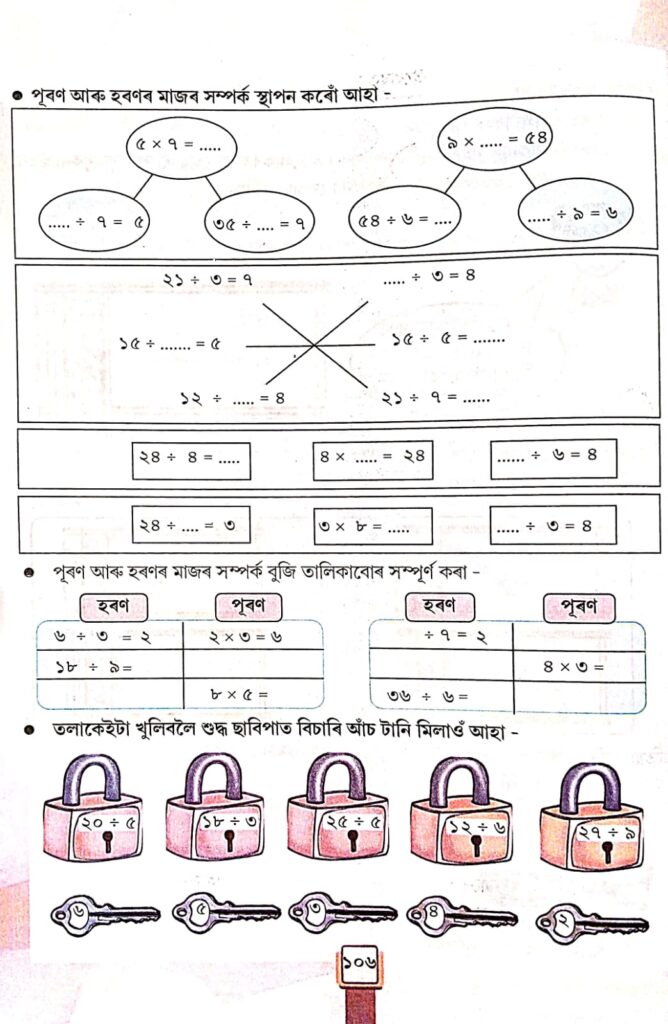 পূৰণ আৰু হৰণৰ মাজৰ সম্পৰ্ক স্থাপন কৰোঁ আহা -
৫ × ৭ = .....
৯ × ..... = ৫৪
..... ÷ ৭ = ৫
৩৫ ÷ .... = ৭
৫৪ ÷ ৬ = ....
..... ÷ ৯ = ৬
২১ ÷ ৩ = ৭
..... ÷ ৩ = ৪
১৫ ÷ ....... = ৫
১৫ ÷ ৫ = .......
১২ ÷ ..... = ৪
২১ ÷ ৭ = ......
২৪ ÷ ৪ = .....
৪ × ..... = ২৪
...... ÷ ৬ = ৪
২৪ ÷ .... = ৩
৩ × ৮ = .....
..... ÷ ৩ = ৪
পূৰণ আৰু হৰণৰ মাজৰ সম্পৰ্ক বুজি তালিকাবোৰ সম্পূৰ্ণ কৰা -
হৰণ পূৰণ হৰণ পূৰণ
৬ ÷ ৩ = ২ ২ × ৩ = ৬ ÷ ৭ = ২
১৮ ÷ ৯ = ৪ × ৩ =
৮ × ৫ = ৩৬ ÷ ৬ =
তলাকেইটা খুলিবলৈ শুদ্ধ ছাবিপাত বিচাৰি আঁচ টানি মিলাওঁ আহা -
২০ ÷ ৫ ১৮ ÷ ৩ ২৫ ÷ ৫ ১২ ÷ ৬ ২৭ ÷ ৯
৬ ৫ ৩ ৪ ২
১০৬